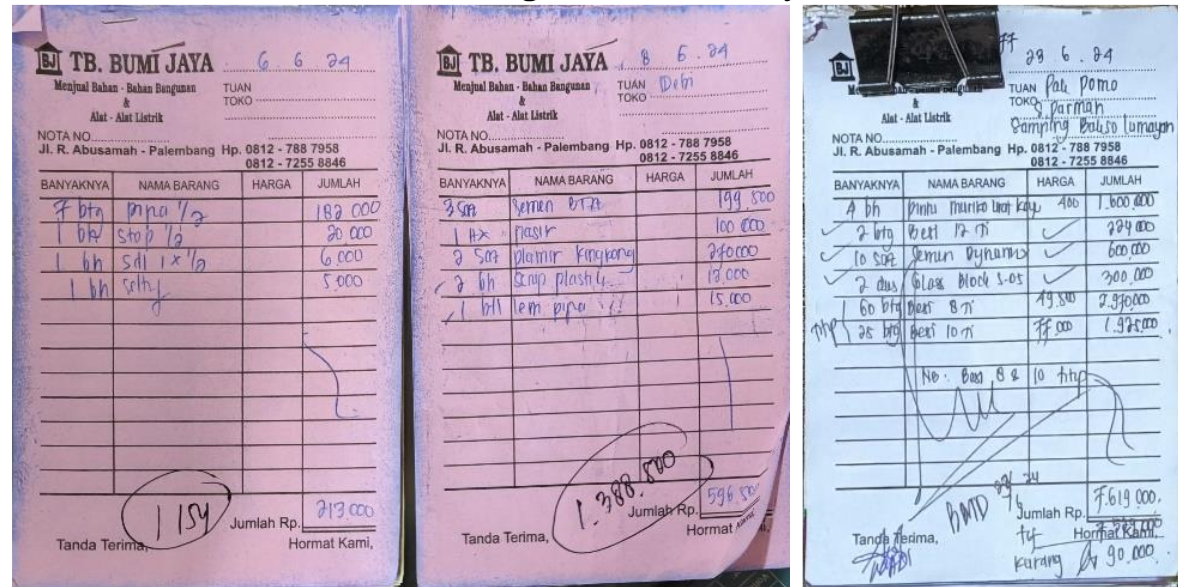 BJ TB. BUMI JAYA 6 6 24
Menjual Bahan - Bahan Bangunan
&
Alat - Alat Listrik
TUAN
TOKO
NOTA NO.
Jl. R. Abusamah - Palembang Hp. 0812 - 788 7958
0812 - 7255 8846
BANYAKNYA NAMA BARANG HARGA JUMLAH
7 btg pipa 1/2 182 000
1 bh stop 1/2 20 000
1 bh sdl 1 x 1/2 6.000
1 bh 5.000
1154
Jumlah Rp. 213.000
Tanda Terima, Hormat Kami,
BJ TB. BUMI JAYA 8 6 . 24
Menjual Bahan - Bahan Bangunan
&
Alat - Alat Listrik
TUAN Debi
TOKO
NOTA NO.
Jl. R. Abusamah - Palembang Hp. 0812 - 788 7958
0812 - 7255 8846
BANYAKNYA NAMA BARANG HARGA JUMLAH
3 Semen 199 500
1 pasir 100 000
2 plamir kingkong 270000
2 bh scrap plastik 12.000
1 btl lem pipa 15.000
1.388.500
Jumlah Rp. 596 500
Tanda Terima, Hormat
BJ 23 6 . 24
Alat - Alat Listrik
TUAN Pak Pomo
TOKO S. Parman
Samping Bakso lumayan
NOTA NO.
Jl. R. Abusamah - Palembang Hp. 0812 - 788 7958
0812 - 7255 8846
BANYAKNYA NAMA BARANG HARGA JUMLAH
4 bh pintu urat kayu 400 1.600 000
2 btg Besi 12 224 000
10 Semen Dynamix 600.000
2 dus Glass Block 300.000
60 btg Besi 8 49.500 2.970.000
25 btg Besi 10 77.000 1.925.000
NB. Besi 8 & 10 ttp
Jumlah Rp. 7.619 000.
Tanda Terima, Hormat Kami,
kurang 90.000.